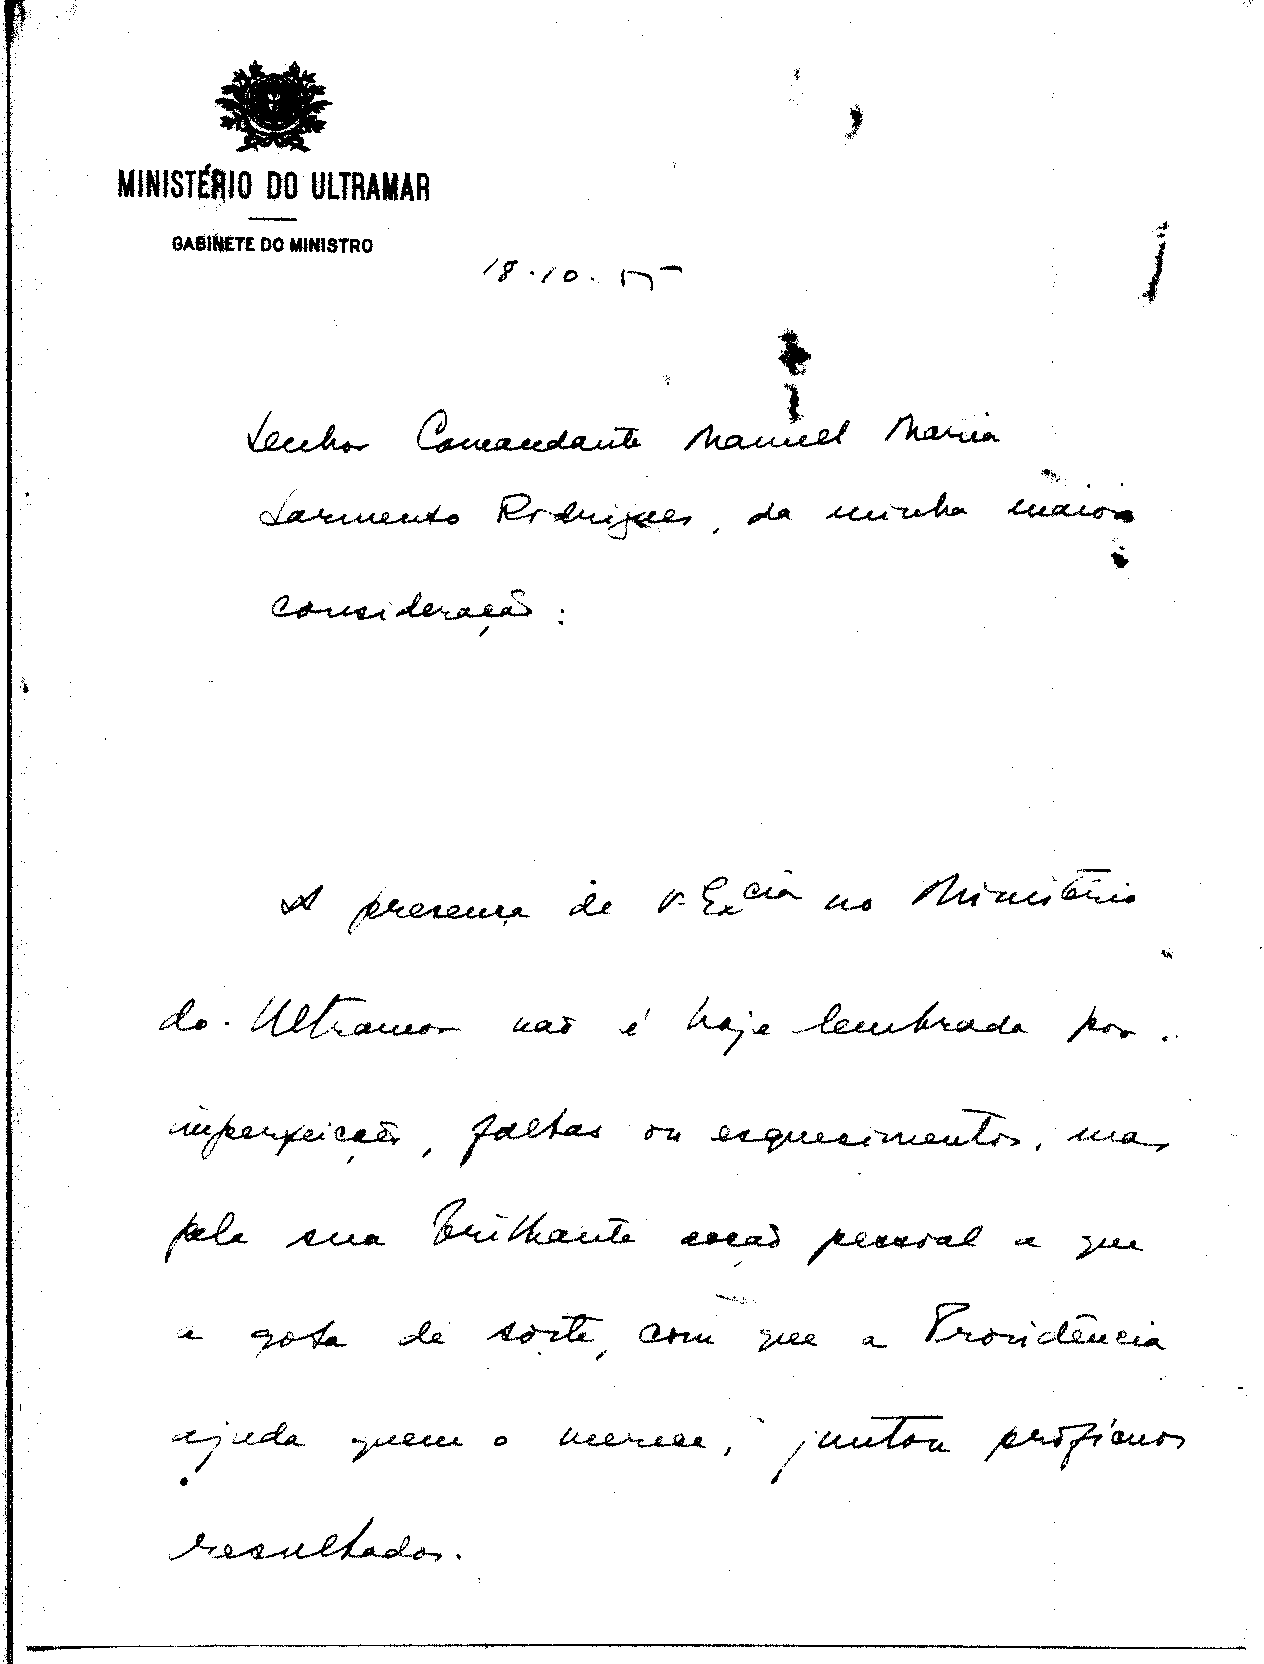 MINISTÉRIO DO ULTRAMAR
GABINETE DO MINISTRO
18.10.55
Senhor Comandante Manuel Maria
Sarmento Rodrigues, da minha maior
consideração:
A presença de V. Excia no Ministério
do Ultramar não é hoje lembrada por
imperfeições, faltas ou esquecimentos, mas
pela sua brilhante acção pessoal a que
a gota de sorte, com que a Providência
ajuda quem o merece, juntou profícuos
resultados.